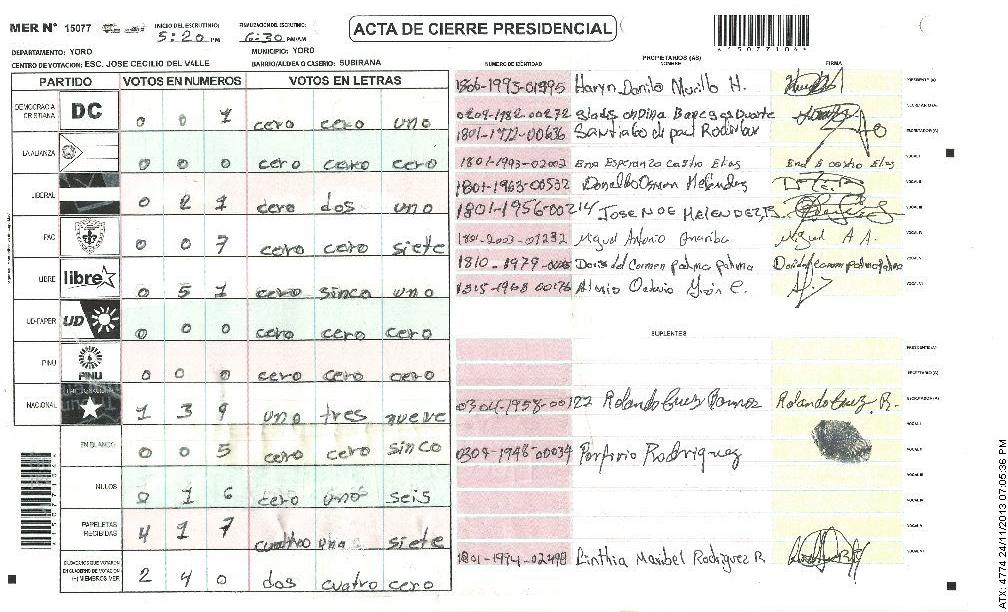 MER Nº 15077
INICIO DEL ESCRUTINIO:
5:20 PM
FINALIZACION DEL ESCRUTINIO:
6:30 PM/AM
ACTA DE CIERRE PRESIDENCIAL
DEPARTAMENTO: YORO
MUNICIPIO: YORO
CENTRO DE VOTACION: ESC. JOSE CECILIO DEL VALLE
BARRIO/ALDEA O CASERIO: SUBIRANA
PARTIDO VOTOS EN NUMEROS VOTOS EN LETRAS
DEMOCRACIA CRISTIANA DC 0 0 1 cero cero uno
LA ALIANZA 0 0 0 cero cero cero
LIBERAL 0 21 cero dos uno
PAC 0 0 7 cero cero siete
LIBRE libre 0 51 cero sinco uno
UD-FAPER UD 0 0 0 cero cero cero
PINU PINU 0 0 0 cero cero cero
NACIONAL 1 3 9 uno tres nueve
EN BLANCO 0 0 5 cero cero sinco
NULOS 0 1 6 cero uno seis
PAPELETAS RECIBIDAS 4 1 7 cuatro uno siete
CIUDADANOS QUE VOTARON EN CUADERNO DE VOTACION (+) MIEMBROS MER 2 4 0 dos cuatro cero
PROPIETARIOS (AS)
NUMERO DE IDENTIDAD NOMBRE FIRMA
Danilo Murillo H. PRESIDENTE (A)
0209-1982-00272 ondina SECRETARIO (A)
1801-1972-00636 Santiago ESCRUTADOR (A)
1801-1993-02002 Ena Esperanza Castro Elias Ena E castro Elias VOCAL I
1801-1963-00532 Donaldo Osman Melendez VOCAL II
1801-1956-00214 JOSE NOE MELENDEZ, B. VOCAL III
1801-2003-01232 Miguel Antonio Miguel A A. VOCAL IV
1810-1979- Doris del Carmen palma palma VOCAL V
Octavio VOCAL VI
SUPLENTES
PRESIDENTE (A)
SECRETARIO (A)
Rolando Cruz Rolando Cruz. R. ESCRUTADOR (A)
VOCAL I
0304-1948-00034 Porfirio Rodriguez VOCAL II
VOCAL III
VOCAL IV
VOCAL V
1801-1994-02498 Linthia Maribel Rodriguez R VOCAL VI
ATX: 4774 24/11/2013 07:05:36 PM